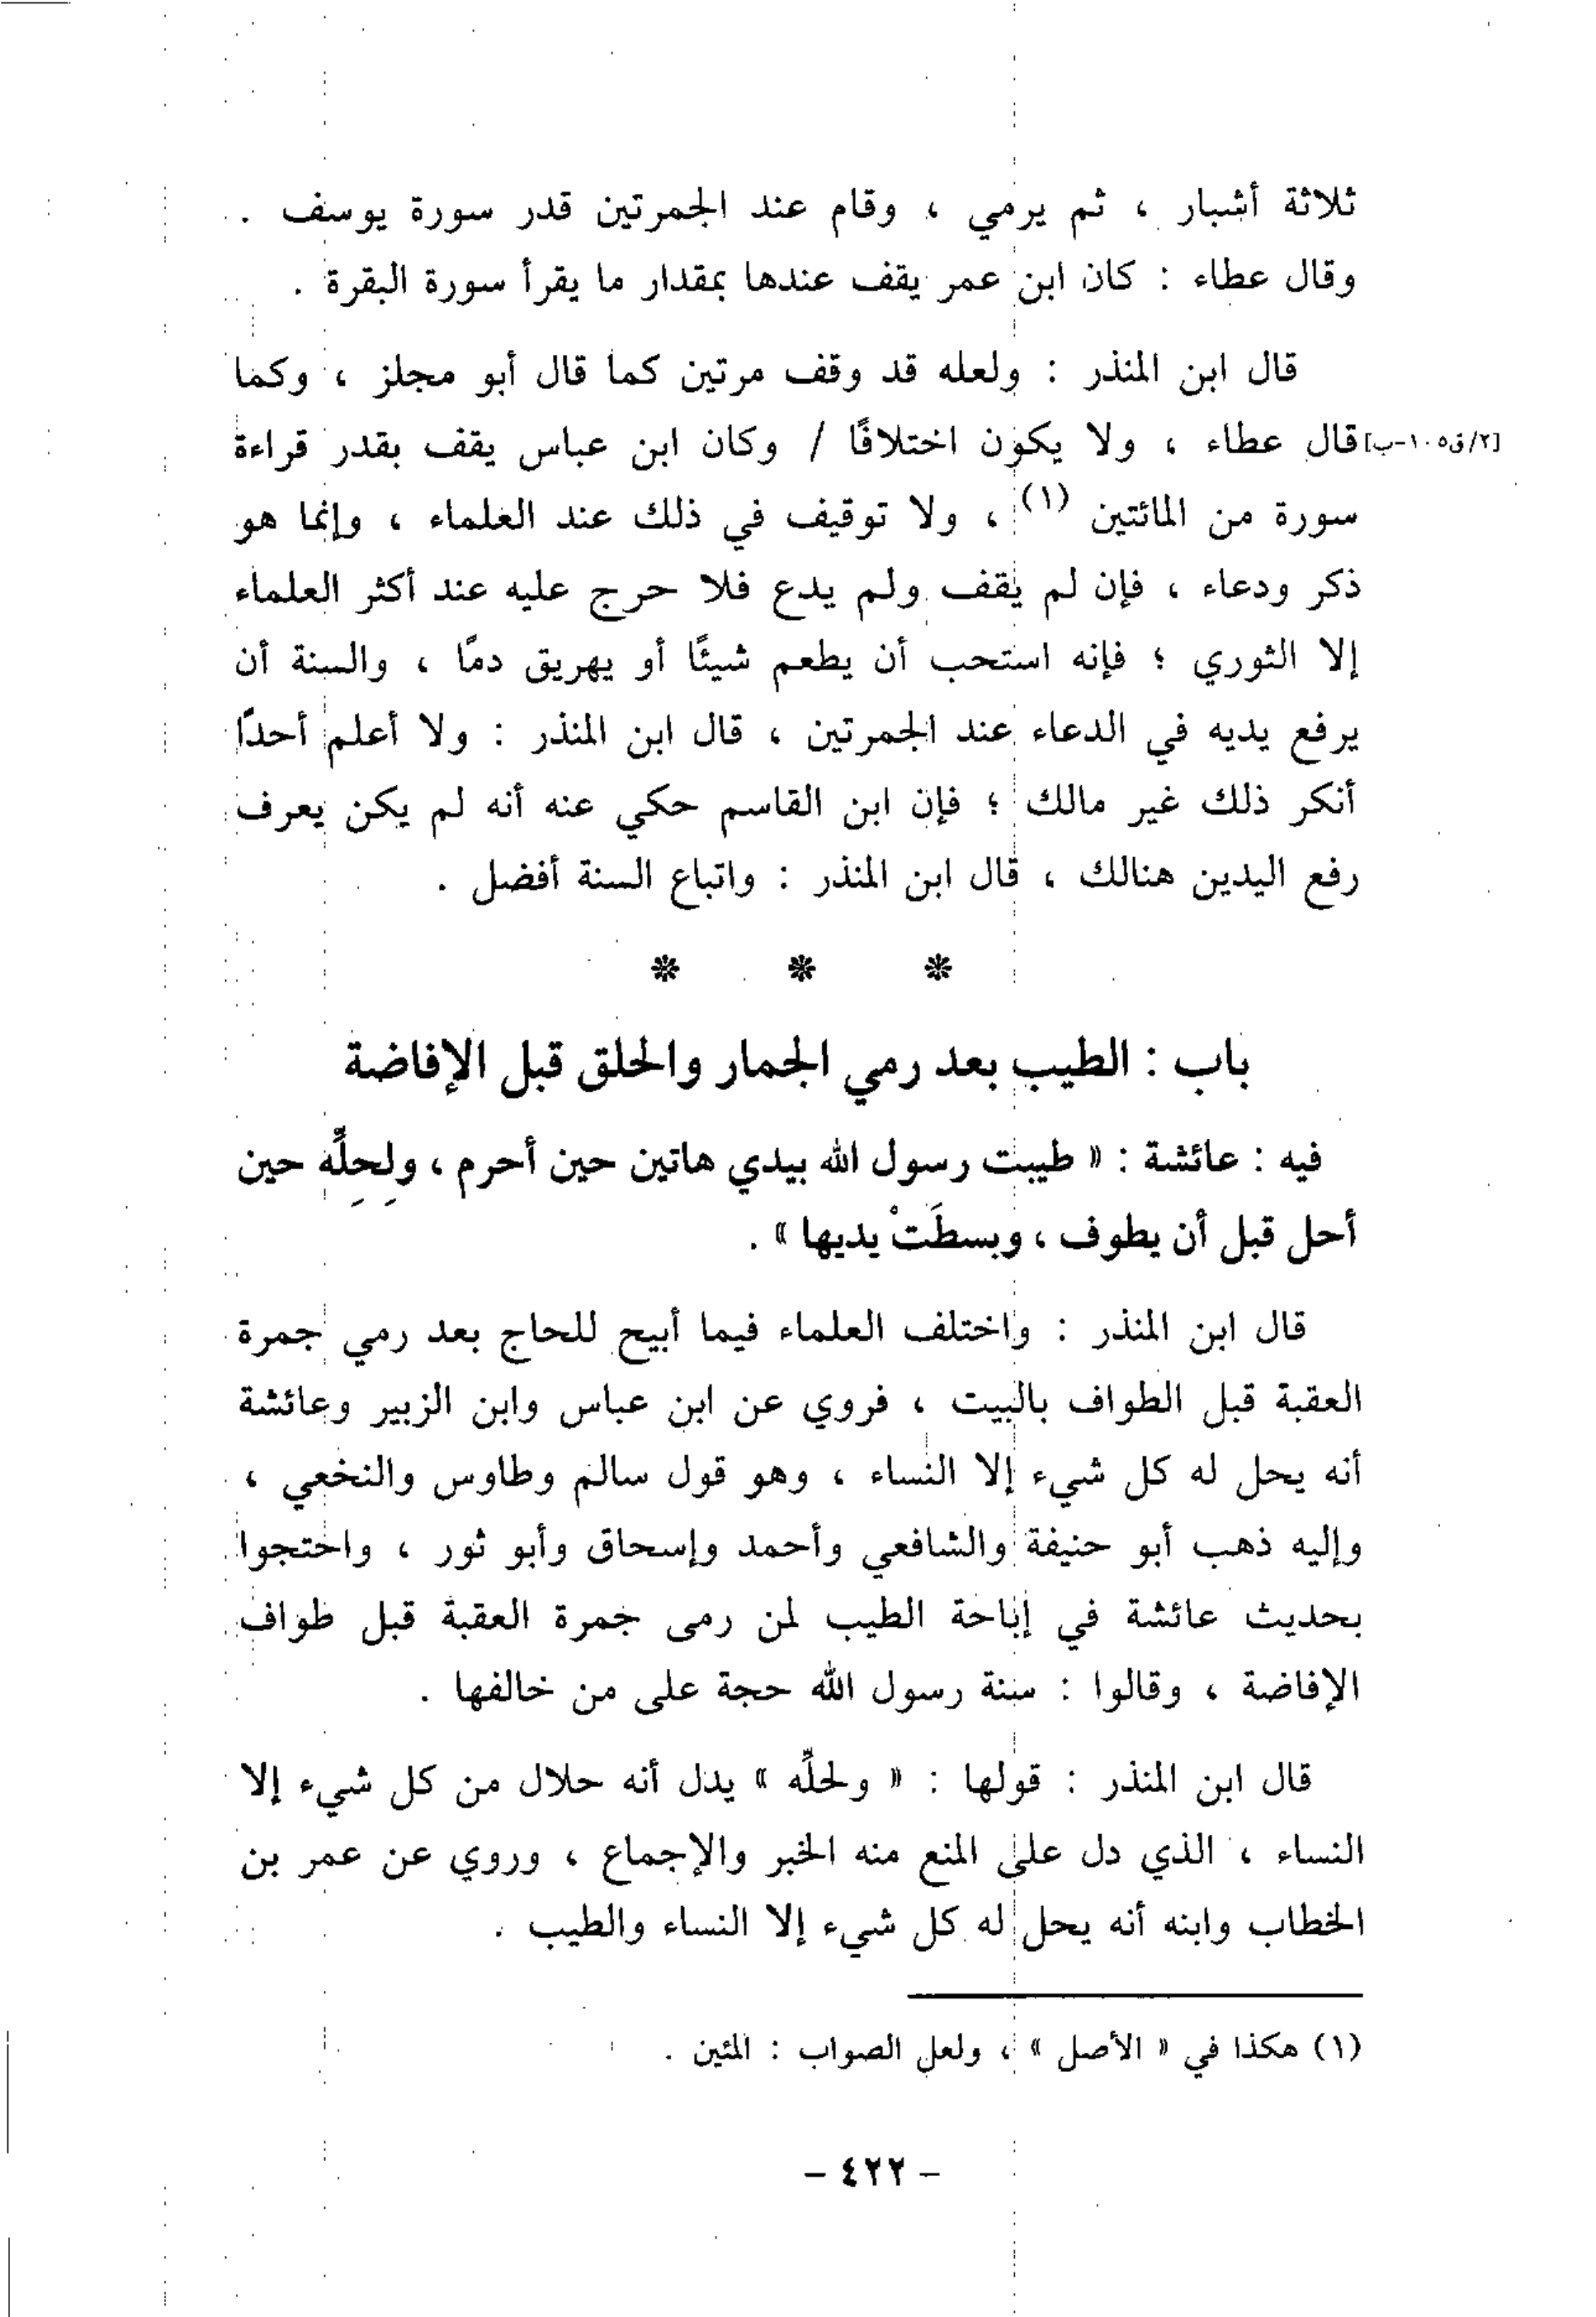 ثلاثة أشبار ، ثم يرمي ، وقام عند الجمرتين قدر سورة يوسف .
وقال عطاء : كان ابن عمر يقف عندها بمقدار ما يقرأ سورة البقرة .
قال ابن المنذر : ولعله قد وقف مرتين كما قال أبو مجلز ، وكما
[٢/ق١٠٥-ب] قال عطاء ، ولا يكون اختلافًا / وكان ابن عباس يقف بقدر قراءة
سورة من المائتين (١) ، ولا توقيف في ذلك عند العلماء ، وإنما هو
ذكر ودعاء ، فإن لم يقف ولم يدع فلا حرج عليه عند أكثر العلماء
إلا الثوري ؛ فإنه استحب أن يطعم شيئًا أو يهريق دمًا ، والسنة أن
يرفع يديه في الدعاء عند الجمرتين ، قال ابن المنذر : ولا أعلم أحدًا
أنكر ذلك غير مالك ؛ فإن ابن القاسم حكي عنه أنه لم يكن يعرف
رفع اليدين هنالك ، قال ابن المنذر : واتباع السنة أفضل .
* * *
باب : الطيب بعد رمي الجمار والحلق قبل الإفاضة
فيه : عائشة : « طيبت رسول الله بيدي هاتين حين أحرم ، ولِحِلِّه حين
أحل قبل أن يطوف ، وبسطَتْ يديها » .
قال ابن المنذر : واختلف العلماء فيما أبيح للحاج بعد رمي جمرة
العقبة قبل الطواف بالبيت ، فروي عن ابن عباس وابن الزبير وعائشة
أنه يحل له كل شيء إلا النساء ، وهو قول سالم وطاوس والنخعي ،
وإليه ذهب أبو حنيفة والشافعي وأحمد وإسحاق وأبو ثور ، واحتجوا
بحديث عائشة في إباحة الطيب لمن رمى جمرة العقبة قبل طواف
الإفاضة ، وقالوا : سنة رسول الله حجة على من خالفها .
قال ابن المنذر : قولها : « ولحلِّه » يدل أنه حلال من كل شيء إلا
النساء ، الذي دل على المنع منه الخبر والإجماع ، وروي عن عمر بن
الخطاب وابنه أنه يحل له كل شيء إلا النساء والطيب .
(١) هكذا في « الأصل » ، ولعل الصواب : المئين .
– ٤٢٢ –